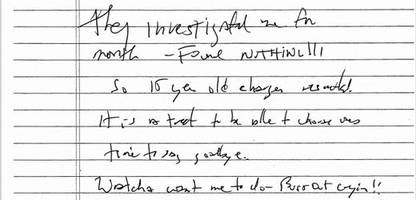 they investigated me for
month – Found NOTHING!!!
So 15 year old charges resulted.
It is a treat to be able to choose ones
time to say goodbye.
Watcha want me to do – Burst out cryin!!